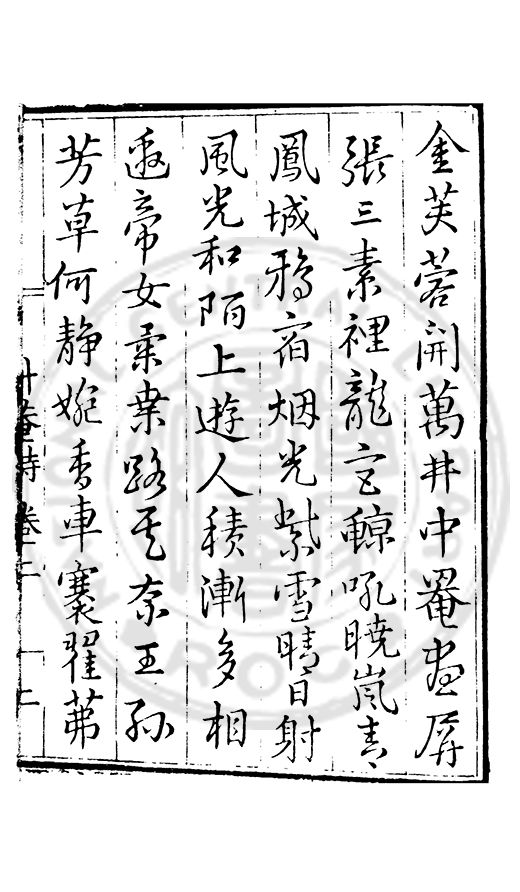 金芙蓉開萬井中罨畫屏
張三素裡龍宮鯨吼曉嵐青
鳳城鴉宿烟光紫雪晴日射
風光和陌上遊人積漸多相
邀帝女桑路其奈王孫
芳草何靜婉香車褰翟茀
升菴詩 卷二 二